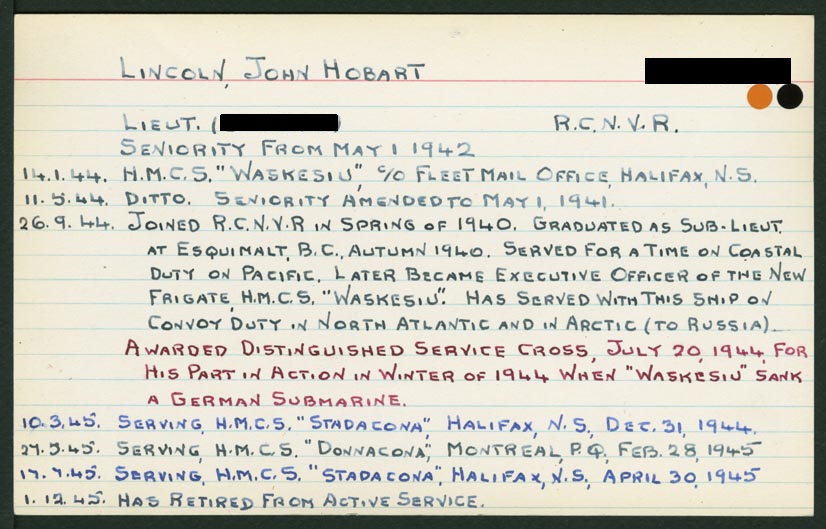 LINCOLN, JOHN HOBART
LIEUT. ( )
R.C.N.V.R.
SENIORITY FROM MAY 1 1942
14.1.44. H.M.C.S. "WASKESIU", C/O FLEET MAIL OFFICE, HALIFAX, N.S.
11.5.44. DITTO. SENIORITY AMENDED TO MAY 1, 1941.
26.9.44. JOINED R.C.N.V.R IN SPRING OF 1940. GRADUATED AS SUB-LIEUT.
AT ESQUIMALT, B.C., AUTUMN 1940. SERVED FOR A TIME ON COASTAL
DUTY ON PACIFIC. LATER BECAME EXECUTIVE OFFICER OF THE NEW
FRIGATE, H.M.C.S. "WASKESIU". HAS SERVED WITH THIS SHIP ON
CONVOY DUTY IN NORTH ATLANTIC AND IN ARCTIC (TO RUSSIA).
AWARDED DISTINGUISHED SERVICE CROSS, JULY 20, 1944, FOR
HIS PART IN ACTION IN WINTER OF 1944 WHEN "WASKESIU" SANK
A GERMAN SUBMARINE.
10.3.45. SERVING, H.M.C.S. "STADACONA", HALIFAX, N.S., DEC. 31, 1944.
SERVING, H.M.C.S. "DONNACONA", MONTREAL, P.Q. FEB. 28, 1945
17.7.45. SERVING, H.M.C.S. "STADACONA", HALIFAX, N.S., APRIL 30, 1945
1.12.45. HAS RETIRED FROM ACTIVE SERVICE.